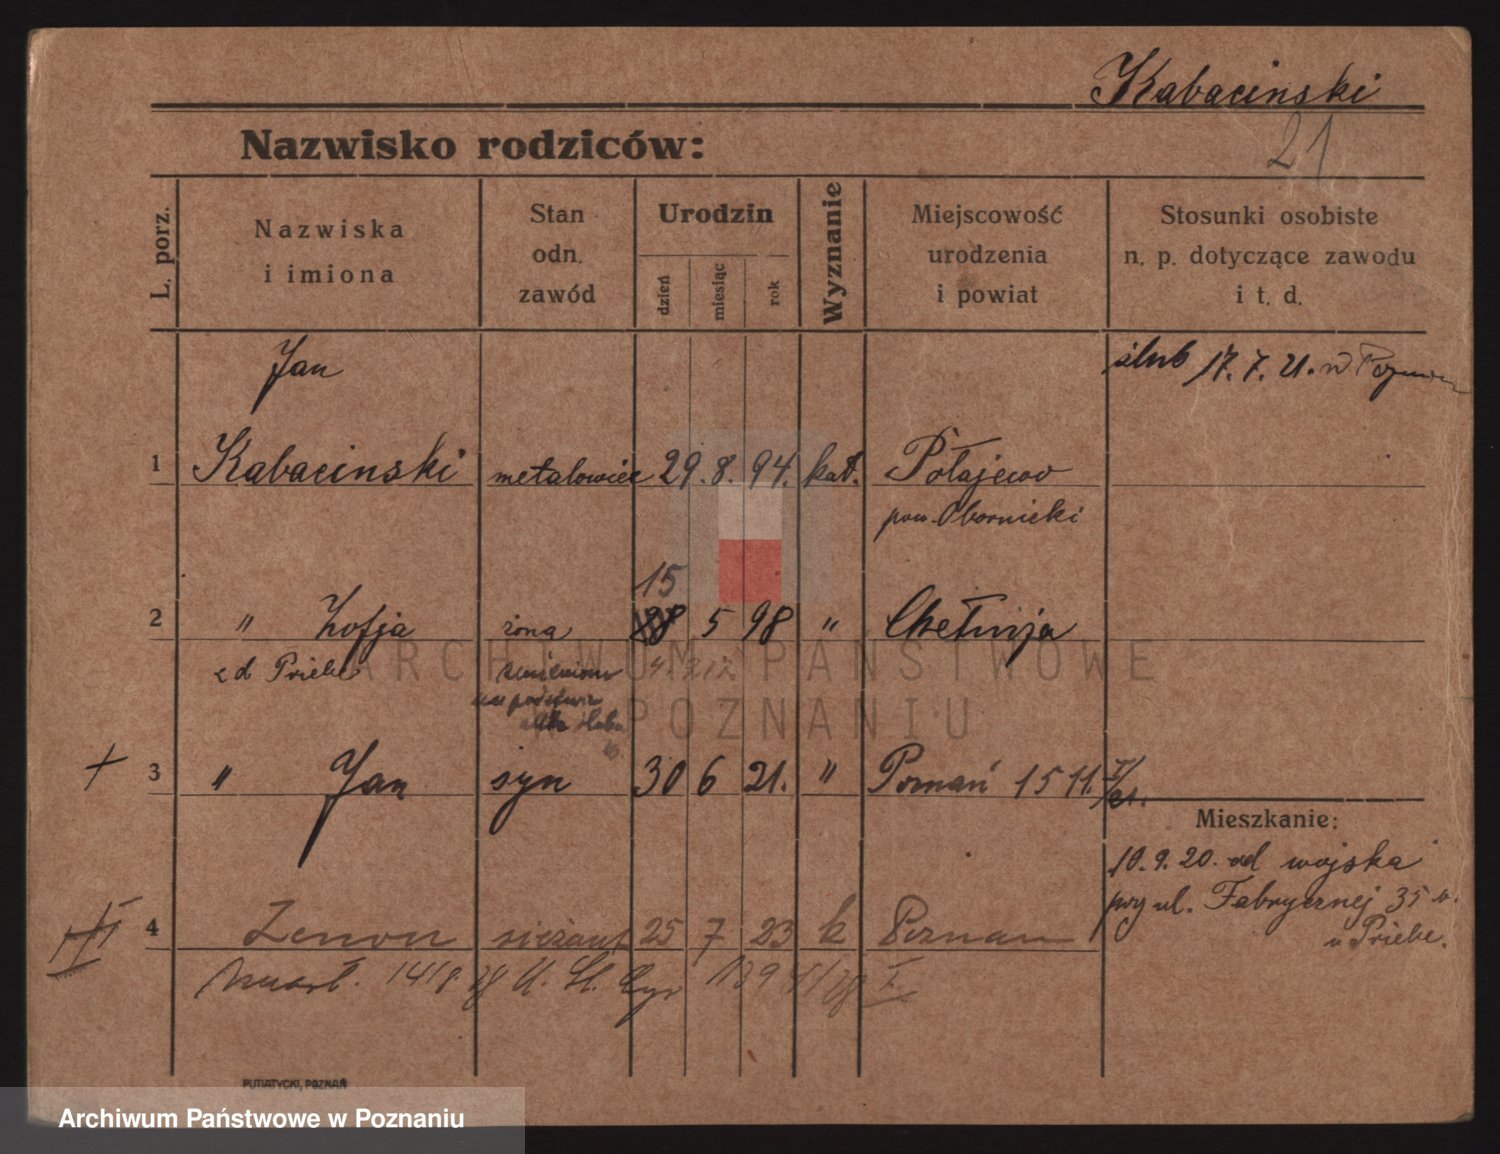 Kabacinski
21
Nazwisko rodziców:
L. porz.
Nazwiska
i imiona
Stan
odn.
zawód
Urodzin
dzień
miesiąc
rok
Wyznanie
Miejscowość
urodzenia
i powiat
Stosunki osobiste
n. p. dotyczące zawodu
i t. d.
Jan
ślub 17. 7. 21. w
1 Kabacinski metalowiec 29. 8. 94. kat. Połajewo
pow. Obornicki
15
2 " Zofja żona 28 5 98 "
z d Priebe
ARCHIWUM PAŃSTWOWE
W POZNANIU
+ 3 " Jan syn 30 6 21. " Poznań 15 11.
Mieszkanie:
10. 9. 20. od wojska
przy ul. Fabrycznej 35
u Priebe.
4 Zenon 25 7 23 k Poznan
zmarł. 14/8. U. St. Cyw
PUTIATYCKI, POZNAŃ
Archiwum Państwowe w Poznaniu